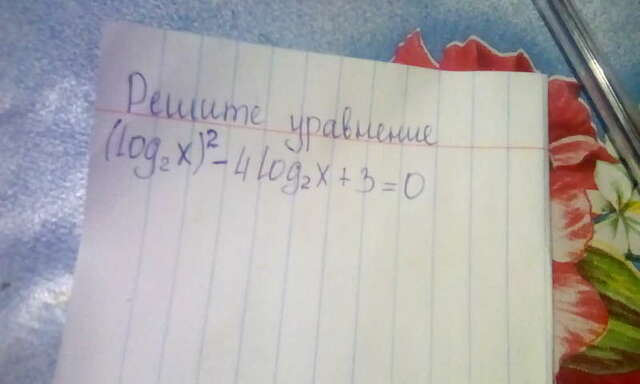 Решите уравнение
(log₂x)² - 4log₂x + 3 = 0